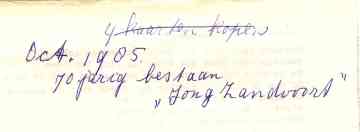 4 kaarten kopen
Oct. 1985.
70 jarig bestaan
„Jong Zandvoort"